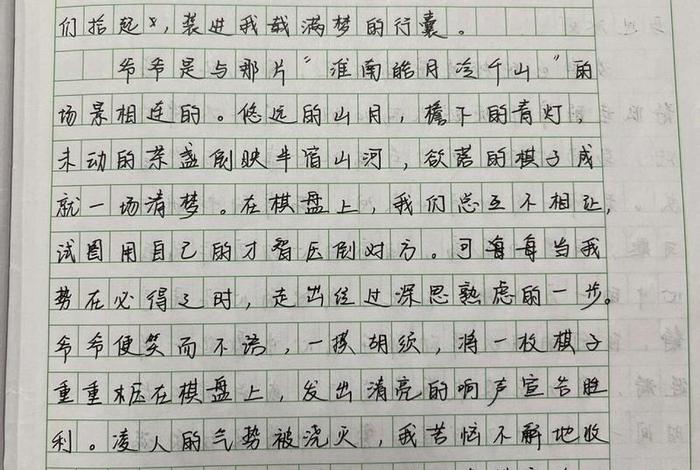 们拾起，装进我载满梦的行囊。
爷爷是与那片“淮南皓月冷千山”的
场景相连的。悠远的山月，檐下的青灯，
未动的茶盏倒映半宿山河，欲落的棋子成
就一场清梦。在棋盘上，我们总互不相让，
试图用自己的才智压倒对方。可每每当我
势在必得之时，走出经过深思熟虑的一步。
爷爷便笑而不语，一捋胡须，将一枚棋子
重重压在棋盘上，发出清亮的响声宣告胜
利。凌人的气势被浇灭，我苦恼不解地收